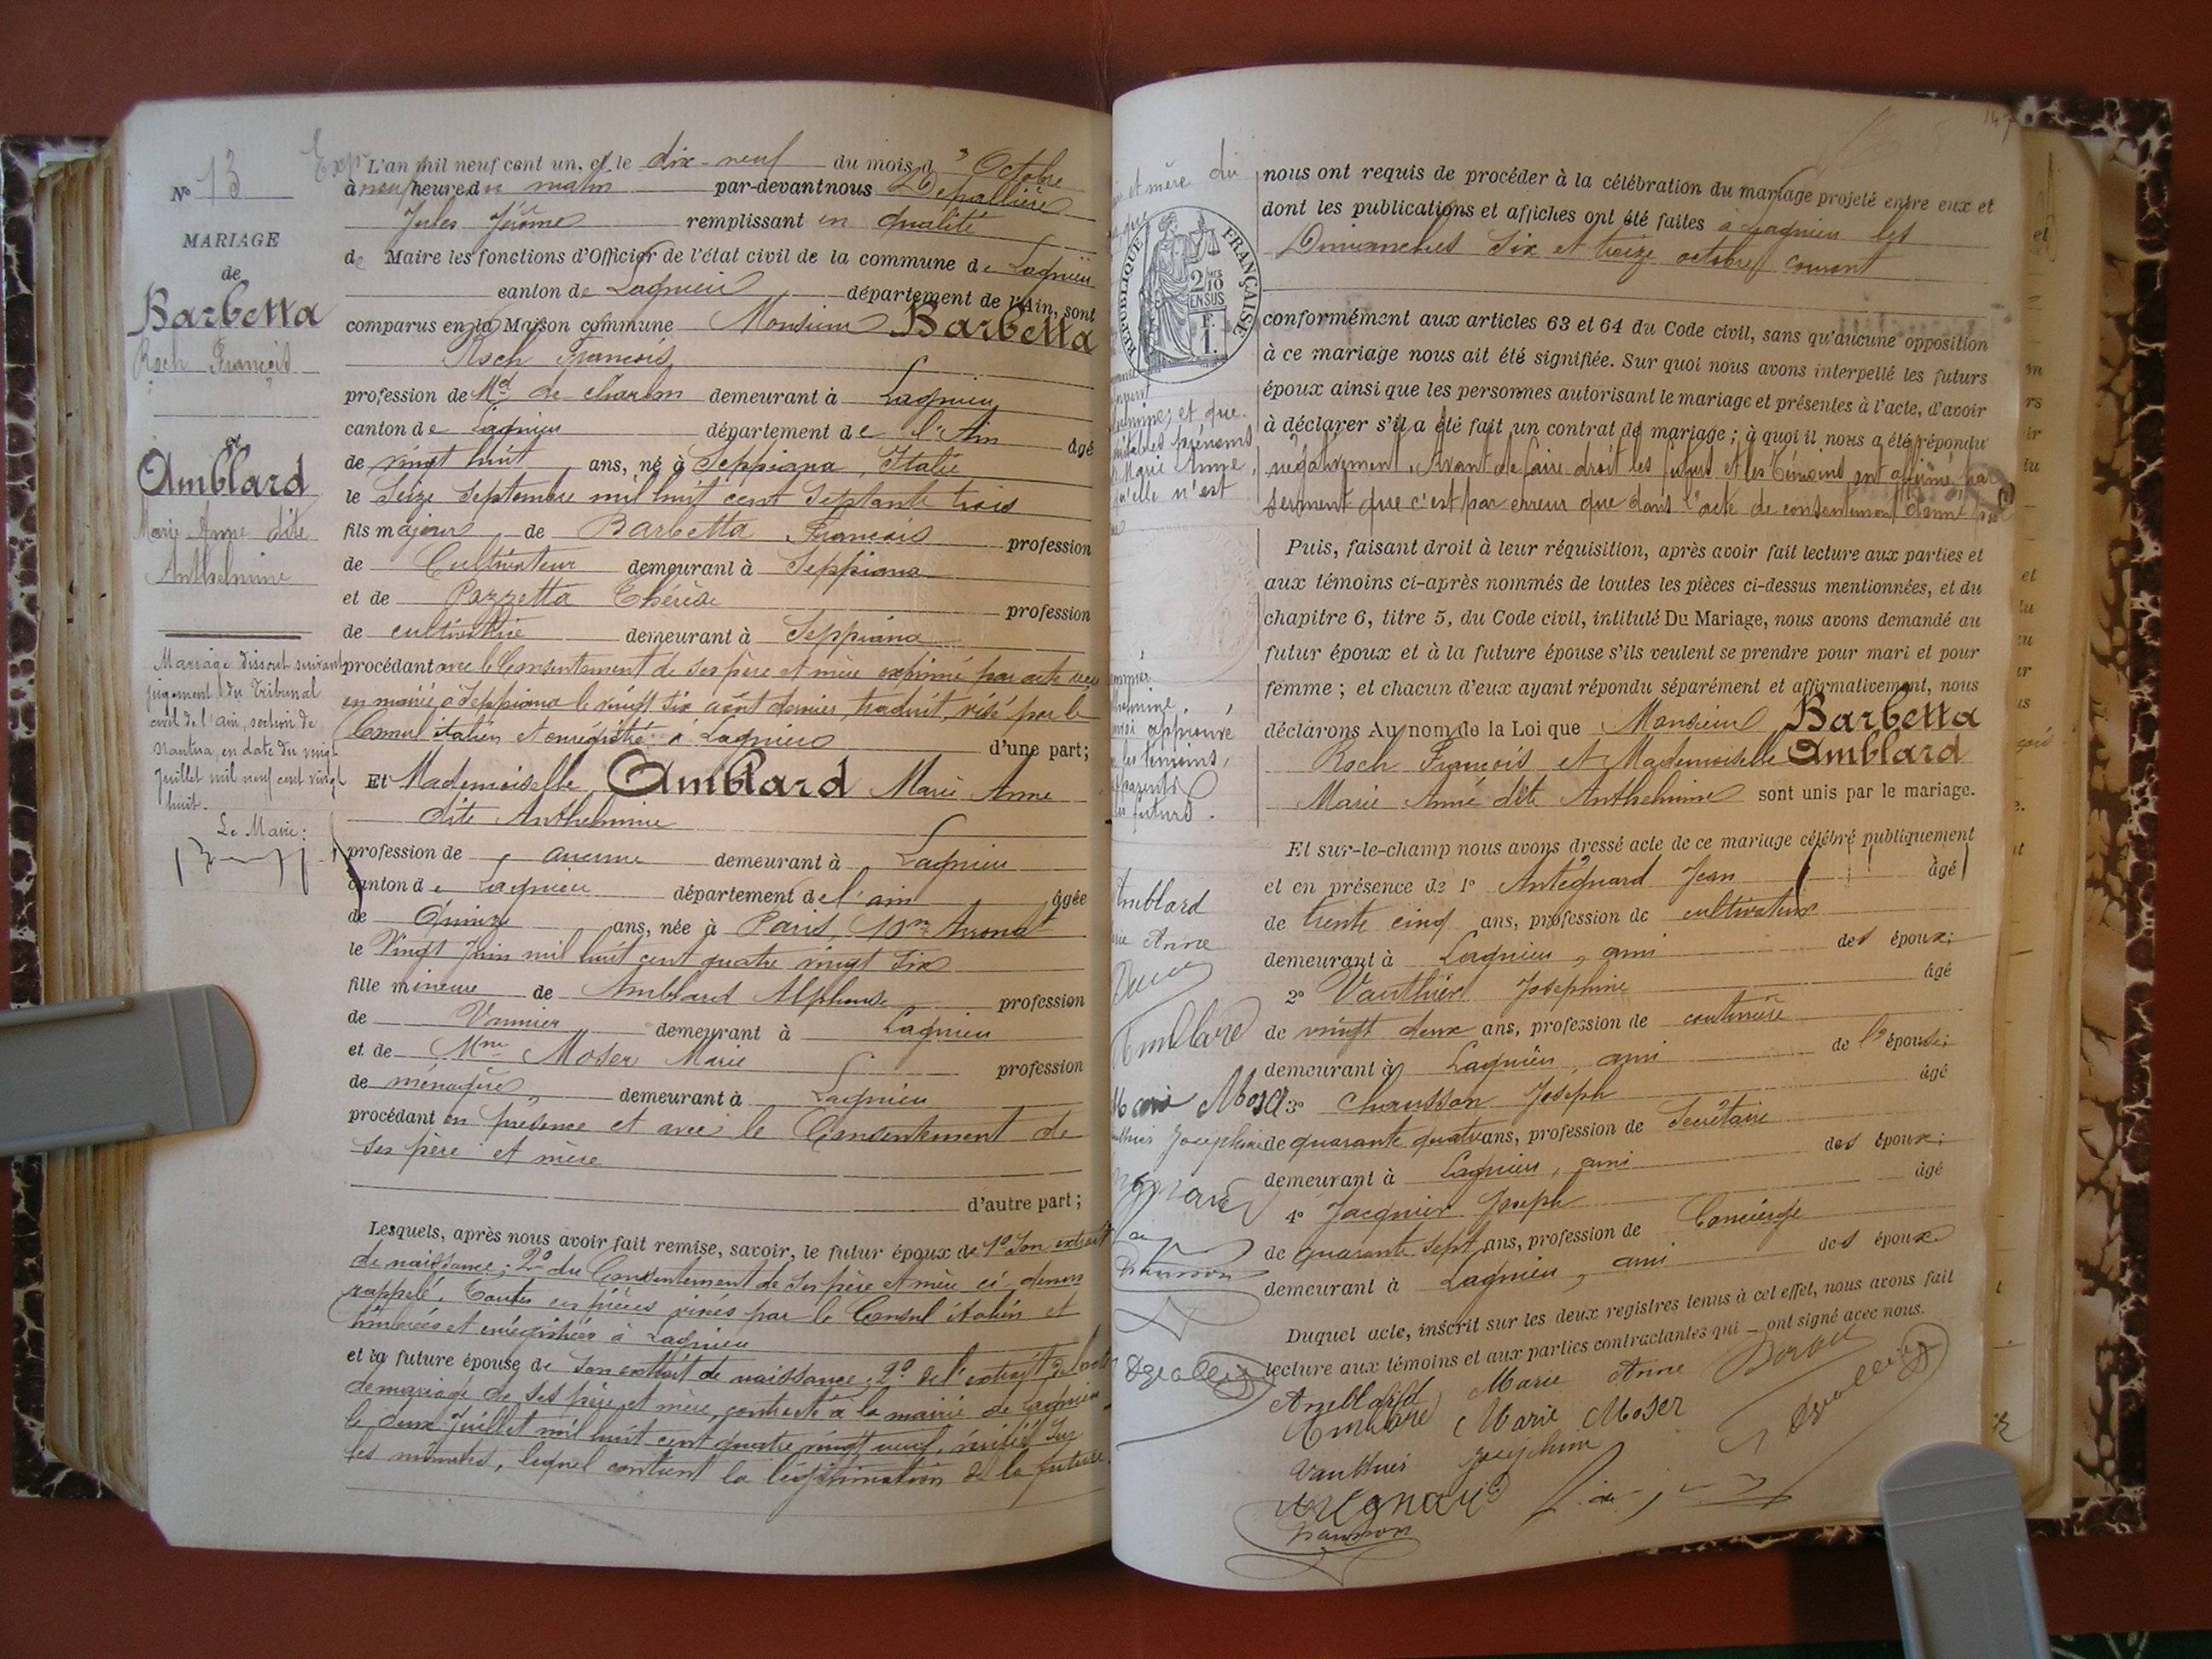 N° 13
MARIAGE
de
Barbetta
Roch François
et
Amblard
Marie Anne dite
Anthelmine
Mariage dissout suivant
jugement du Tribunal
civil de l'ain, section de
Nantua, en date du vingt
Juillet mil neuf cent vingt
huit.
Le Maire:
L'an mil neuf cent un, et le dix-neuf du mois d'Octobre
à neuf heures du matin par-devant nous Depallière
Jules Jérôme remplissant en qualité
de Maire les fonctions d'Officier de l'état civil de la commune de Lagnieu
canton de Lagnieu département de l'Ain, sont
comparus en la Maison commune Monsieur Barbetta
Roch François
profession de Md de charbon demeurant à Lagnieu
canton de Lagnieu département de l'Ain âgé
de vingt huit ans, né à Seppiana, Italie
le Seize Septembre mil huit cent Septante trois
fils majeur de Barbetta François profession
de Cultivateur demeurant à Seppiana
et de Pazzetta Thérèse profession
de cultivatrice demeurant à Seppiana
procédant avec le Consentement de ses père et mère exprimé par acte reçu
en mairie à Seppiana le vingt six août dernier, traduit, visé par le
Consul italien et enregistré à Lagnieu d'une part;
Et Mademoiselle Amblard Marie Anne
dite Anthelmine
profession de aucune demeurant à Lagnieu
canton de Lagnieu département de l'ain âgée
de Quinze ans, née à Paris, 10me Arrondt
le Vingt Juin mil huit cent quatre vingt six
fille mineure de Amblard Alphonse profession
de Vannier demeurant à Lagnieu
et de Mme Moser Marie profession
de ménagère demeurant à Lagnieu
procédant en présence et avec le Consentement de
ses père et mère
d'autre part;
Lesquels, après nous avoir fait remise, savoir, le futur époux de 1° Son extrait
de naissance; 2° du Consentement de ses père et mère ci-dessus
rappelé. Toutes ces pièces visées par le Consul italien et
timbrées et enregistrées à Lagnieu
et la future épouse de Son extrait de naissance; 2° de l'extrait de l'acte
de mariage de ses père et mère, contracté à la mairie de Lagnieu
le deux Juillet mil huit cent quatre vingt neuf, vérifié sur
les minutes, lequel contient la légitimation de la future
et mère du
RÉPUBLIQUE FRANÇAISE
2/10 EN SUS
et que
prénoms
Marie Anne,
qu'elle n'est
approuvé
les témoins,
parents
futurs.
nous ont requis de procéder à la célébration du mariage projeté entre eux et
dont les publications et affiches ont été faites à Lagnieu les
Dimanches Six et treize octobre courant
conformément aux articles 63 et 64 du Code civil, sans qu'aucune opposition
à ce mariage nous ait été signifiée. Sur quoi nous avons interpellé les futurs
époux ainsi que les personnes autorisant le mariage et présentes à l'acte, d'avoir
à déclarer s'il a été fait un contrat de mariage; à quoi il nous a été répondu
négativement. Avant de faire droit les futurs et les témoins ont affirmé par
serment que c'est par erreur que dans l'acte de consentement donné par
Puis, faisant droit à leur réquisition, après avoir fait lecture aux parties et
aux témoins ci-après nommés de toutes les pièces ci-dessus mentionnées, et du
chapitre 6, titre 5, du Code civil, intitulé Du Mariage, nous avons demandé au
futur époux et à la future épouse s'ils veulent se prendre pour mari et pour
femme; et chacun d'eux ayant répondu séparément et affirmativement, nous
déclarons Au nom de la Loi que Monsieur Barbetta
Roch François et Mademoiselle Amblard
Marie Anne dite Anthelmine sont unis par le mariage.
Et sur-le-champ nous avons dressé acte de ce mariage célébré publiquement
et en présence de 1° Antégnard Jean âgé
de trente cinq ans, profession de cultivateur
demeurant à Lagnieu, ami des époux;
2° Vauthier Joséphine âgé
de vingt deux ans, profession de couturière
demeurant à Lagnieu, ami de l'épouse;
3° Chausson Joseph âgé
de quarante quatre ans, profession de Secrétaire
demeurant à Lagnieu, ami des époux;
4° Jacquier Joseph âgé
de quarante sept ans, profession de Concierge
demeurant à Lagnieu, ami des époux
Duquel acte, inscrit sur les deux registres tenus à cet effet, nous avons fait
lecture aux témoins et aux parties contractantes qui ont signé avec nous.
Amblard Marie Anne
Marie Moser
Vauthier Joséphine